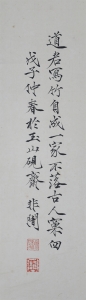 道者寫竹自成一家不落古人窠臼
戊子仲春於玉山硯齋 非闇